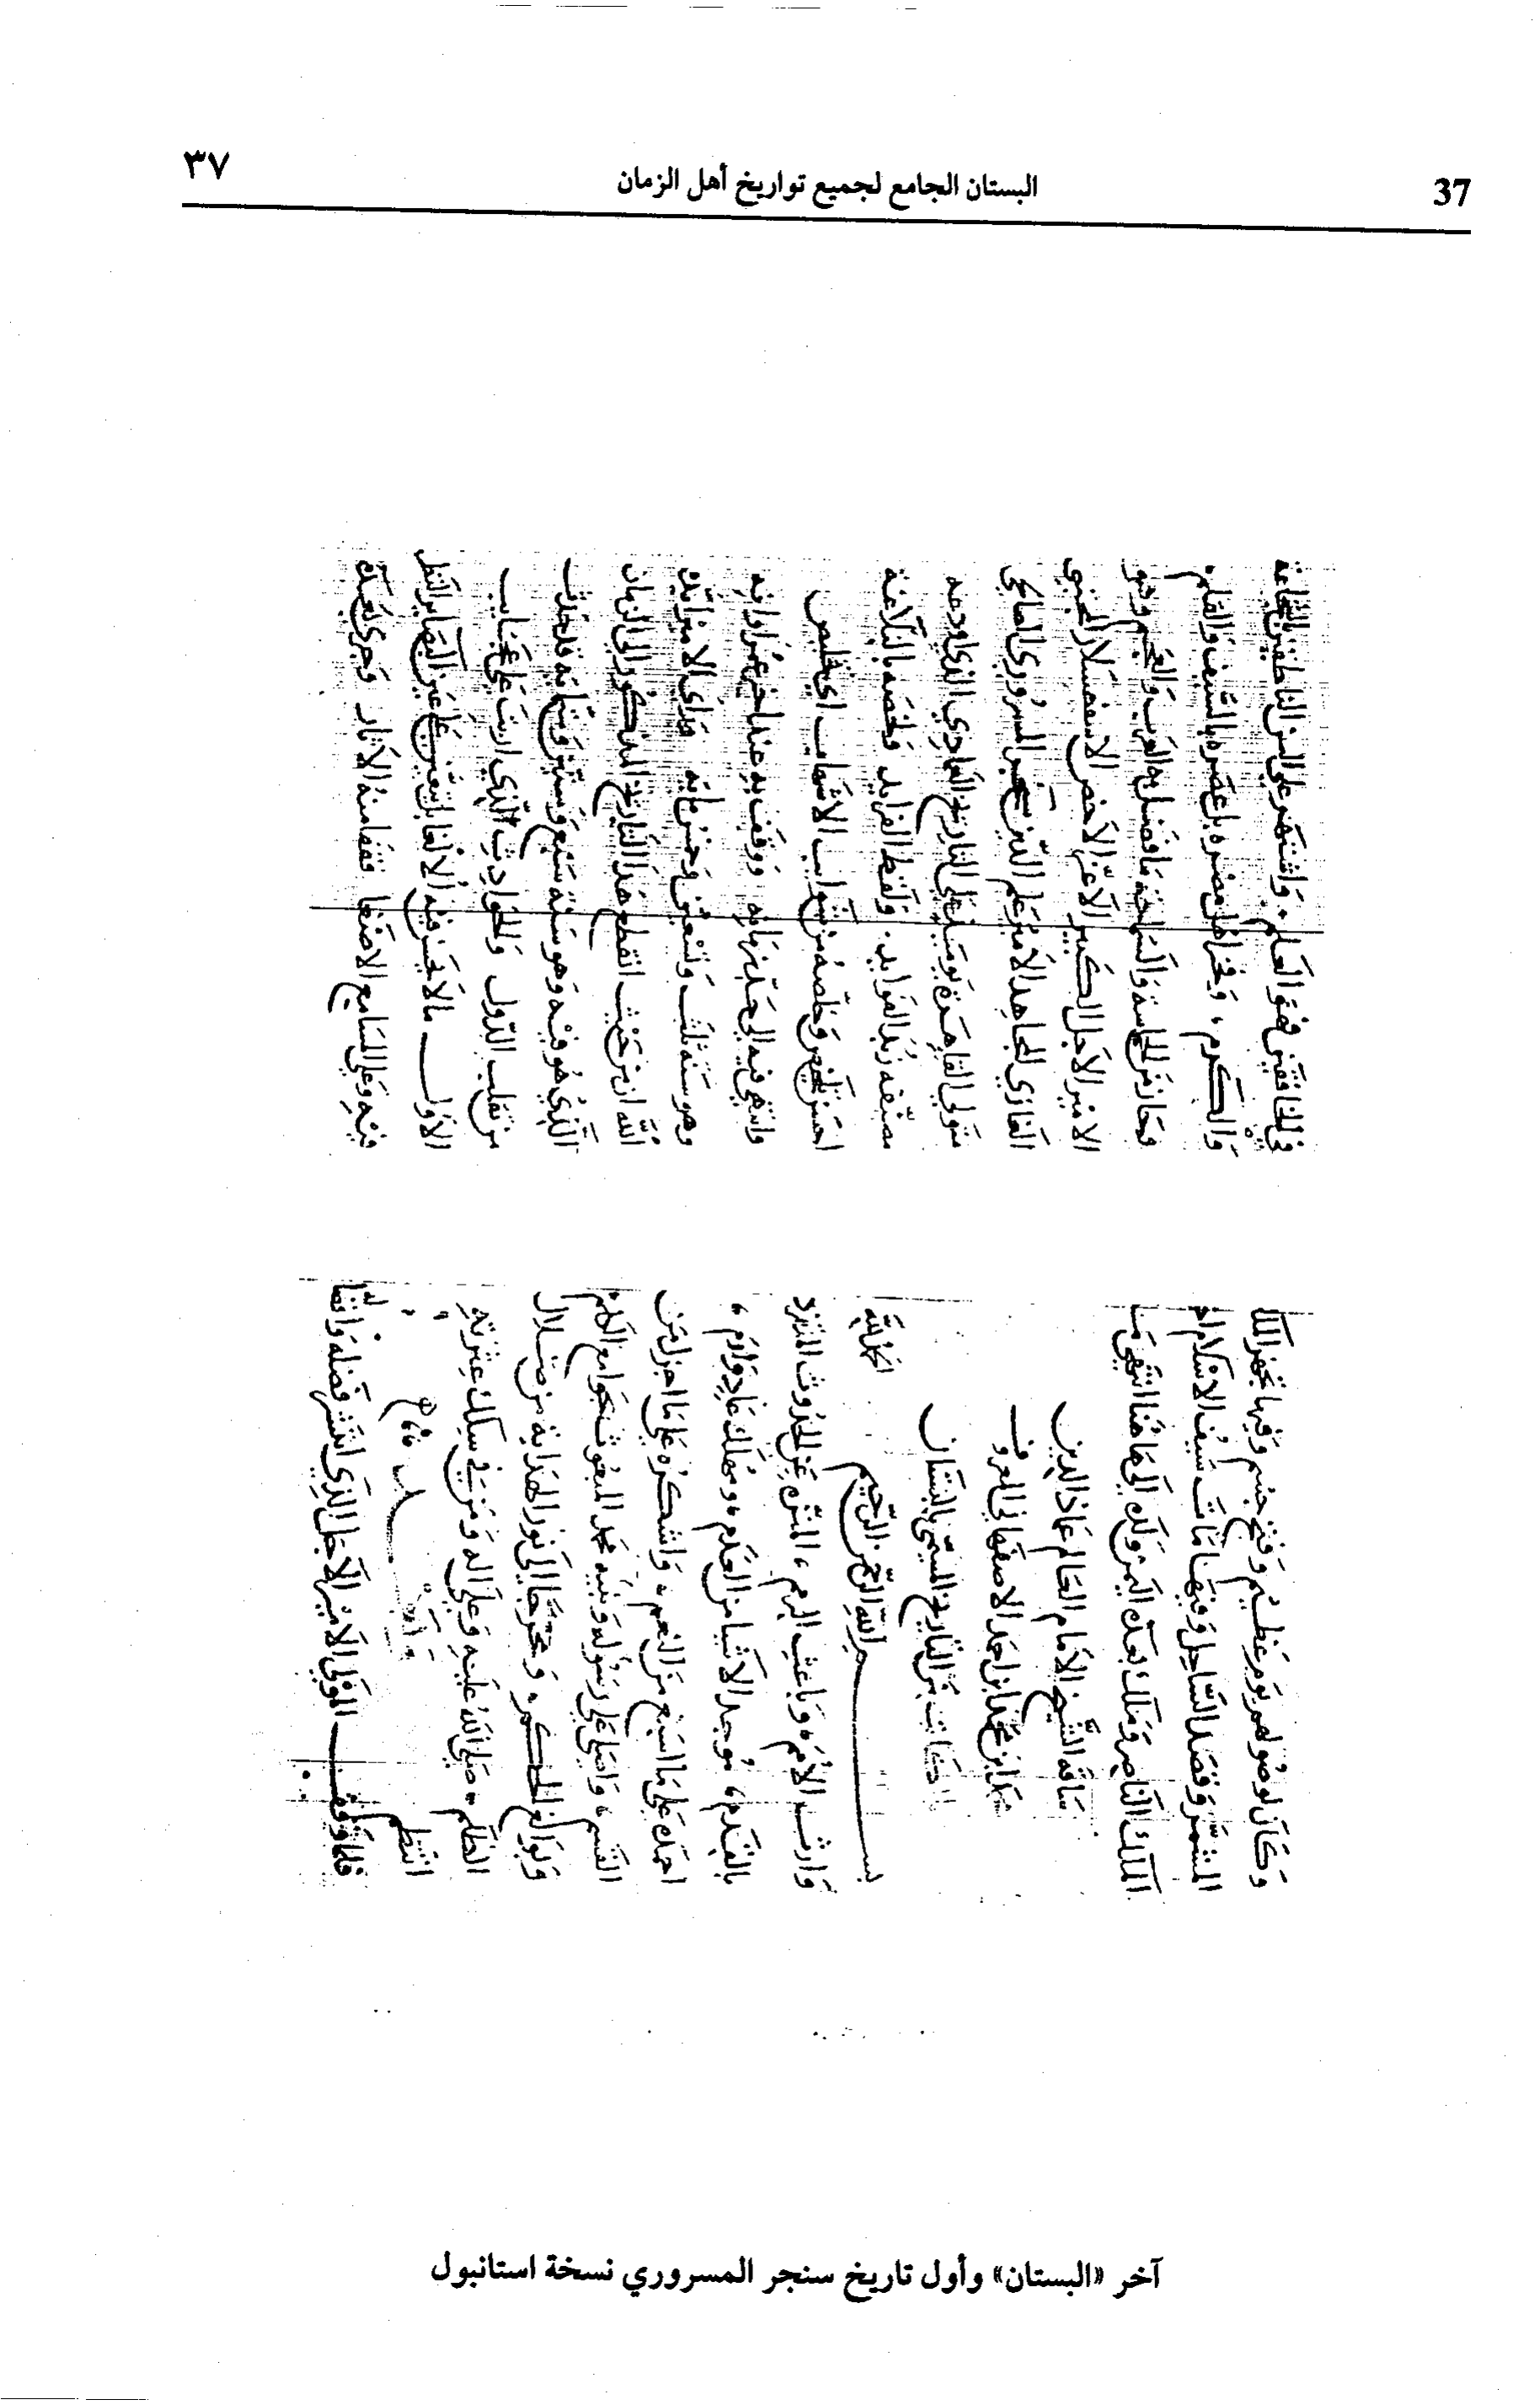 37
البستان الجامع لجميع تواريخ أهل الزمان
٣٧
وكان لوصولهم يوم عظيم وفتح جسيم وفيها تجهز الملك
المشمر وقصد الساحل وفيها مات سيف الاسلام
الملك الناصر وملك بعده اليمن ولده الى هاهنا انتهى ما
ساقه الشيخ الامام العالم عماد الدين
محمد ابن محمد ابن احمد الاصفهاني المعروف
بالكاتب من التاريخ المسمى بالبستان
بسم الله الرحمن الرحيم الحمد لله
وارث الامم، وباعث الرمم، المنزه عن الحدوث المتفرد
بالقدم، موجد الاشيا من العدم، ومهلك عاد وارم،
احمده على ما اسبغ من النعم، واشكره على ما اجزل من
القسم، واصلي على رسوله ونبيه محمد المبعوث بجوامع الكلم
وبوالغ الحكم، ومخرجا الى نور الهداية من ضلال
الظلم، صلى الله عليه وعلى اله ومن في سلك عترته
انتظم
فلما وقف المولى الامير الاجل الذي انتشر فضله
في الخافقين فهو العلم، واشتهر على السن الناطقين بالشجاعة
والكرم، وفخر اهل مصره بل عصره بالسيف والقلم،
فحاز من الحماسة والسماحة ما فضل به العرب والعجم وهو
الامير الاجل الكبير الاعز الاخص الاسفهسلار المجتبى
الغازي المجاهد الامير علم الدين سنجر المسروري الصالحي
متولي القاهرة يوميذ على التاريخ العمادي الذي اودعه
مصنفه زبد الفوايد، ولفظ الفرايد، ولخصه بالبلاغة
احسن تلخيص وخلصه من شوايب الاشهاب اي تخليص
وانتهى فيه الى حد زمانه ووقف به عند اخر عمره واوانه
وهو سنة ثلث وتسعين وخمس ماية فراى الامير ايده
الله ان من حيث انقطع هذا التاريخ المذكور الى الزمان
الذي هو فيه وهو سنة سبع وستين وستماية قد حدث
من تقلب الدول والحوادث التي اربت على عجايب
الاول ما لا يحسن فيه الاغفال
فيه وعلى السامع الاصغا فقفا منه الاثار وجرى بعده
آخر «البستان» وأول تاريخ سنجر المسروري نسخة استانبول